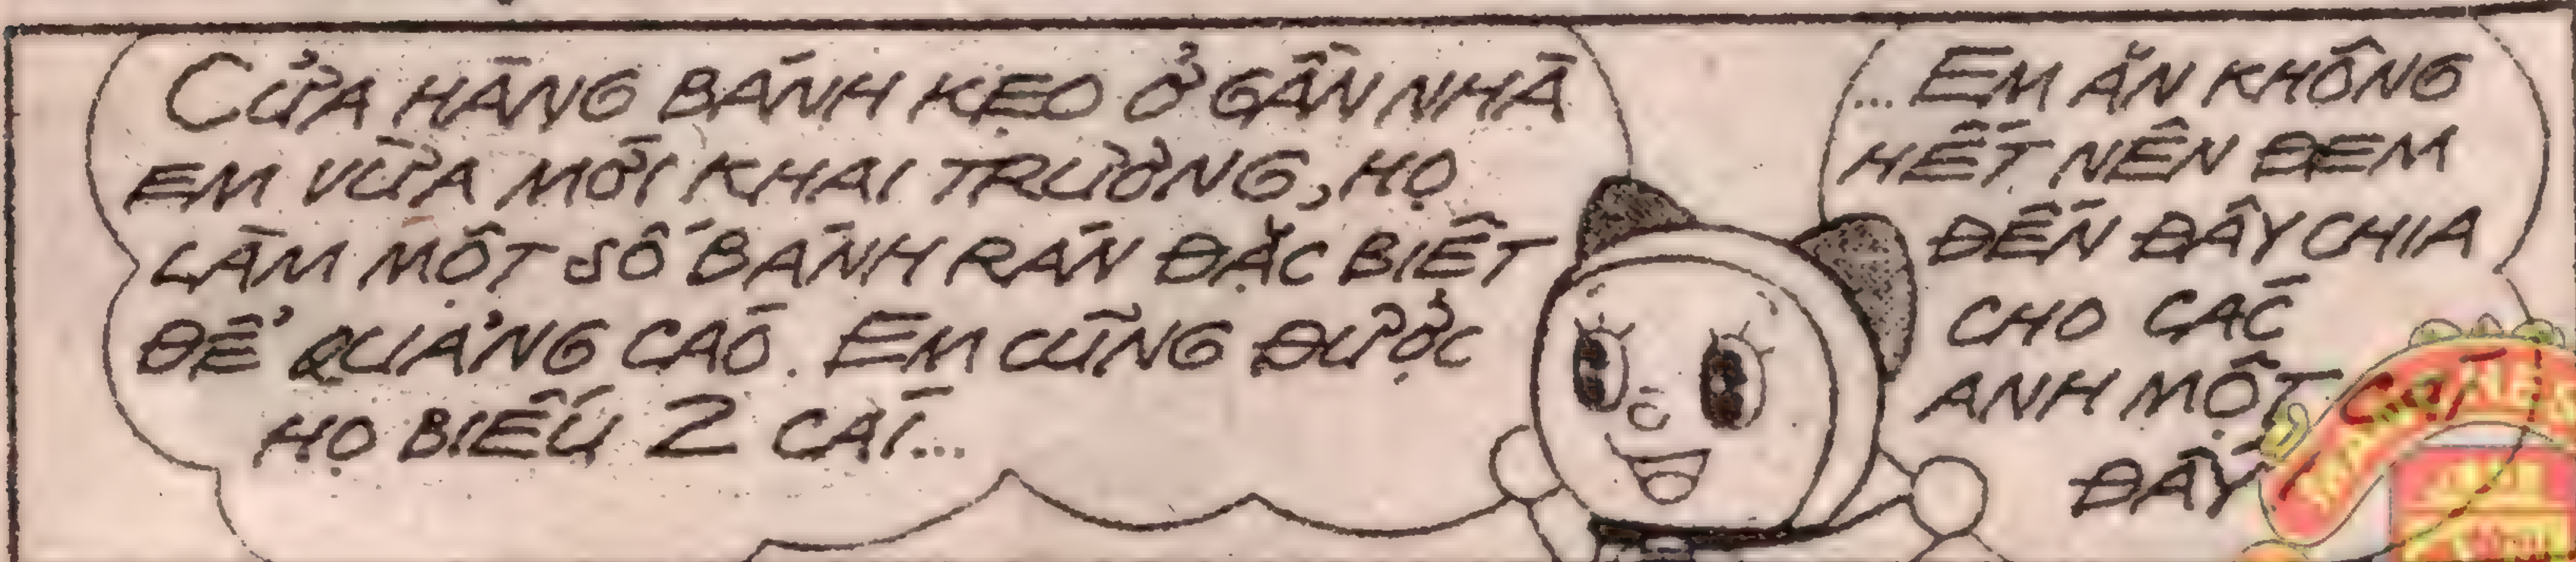 CỬA HÀNG BÁNH KẸO Ở GẦN NHÀ
EM VỪA MỚI KHAI TRƯỜNG, HỌ
LÀM MỘT SỐ BÁNH RÁN ĐẶC BIỆT
ĐỂ QUẢNG CÁO. EM CŨNG ĐƯỢC
HỌ BIẾU 2 CÁI...
... EM ĂN KHÔNG
HẾT NÊN ĐEM
ĐẾN ĐÂY CHIA
CHO CÁC
ANH MỘT CÁI
ĐÂY